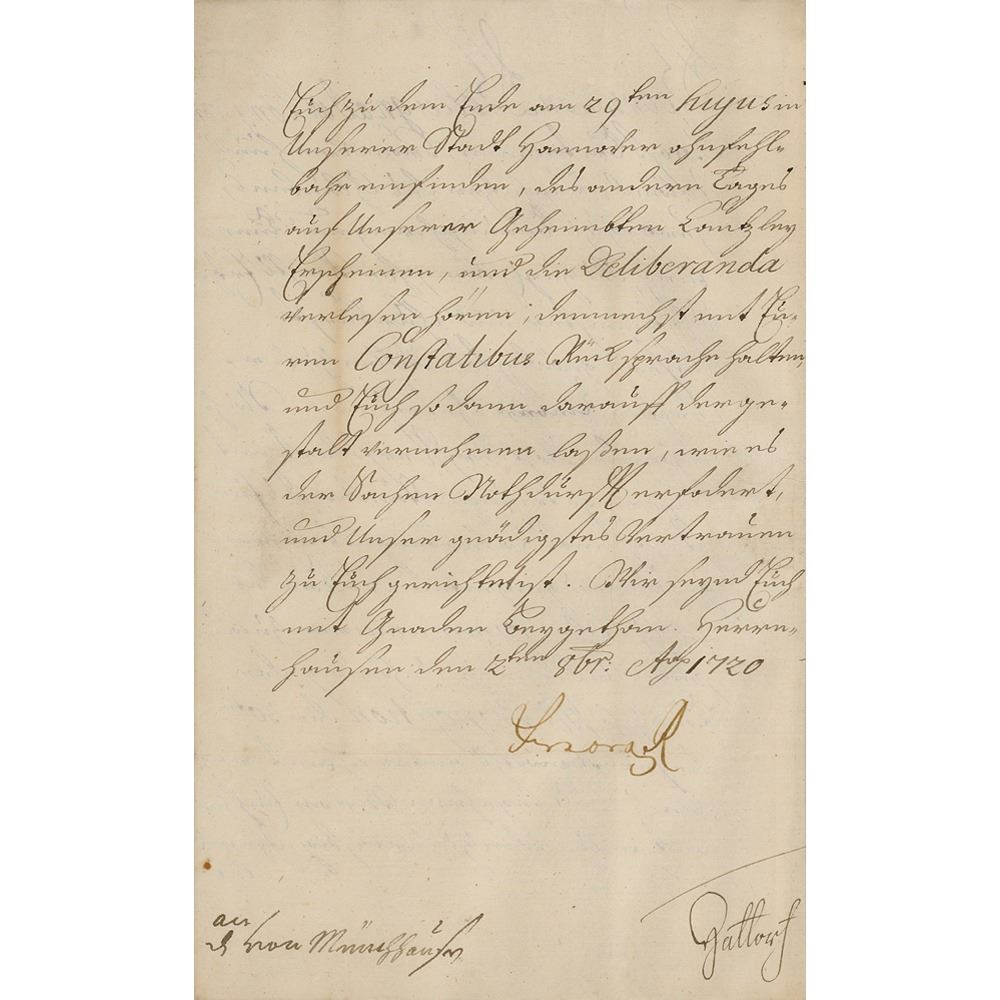 Euch zu dem Ende am 29ten hujus in
Unserer Stadt Hannover ohnfehl-
bahr einfinden, des andern Tages
auf Unserer Geheimbten Cantzley
Erscheinen, und die Deliberanda
verlesen hören, demnechst mit Eu-
ren Constatibus Rücksprache halten,
und Euch sodann darauff derge-
stalt vernehmen laßen, wie es
der Sachen Nothdurfft erfodert,
und Unser gnädigstes Vertrauen
zu Euch gerichtet ist. Wir seynd Euch
mit Gnaden beygethan. Herrn-
hausen den 2ten 8br. Ao 1720
George R
an
d von Münchhausen
Hattorf